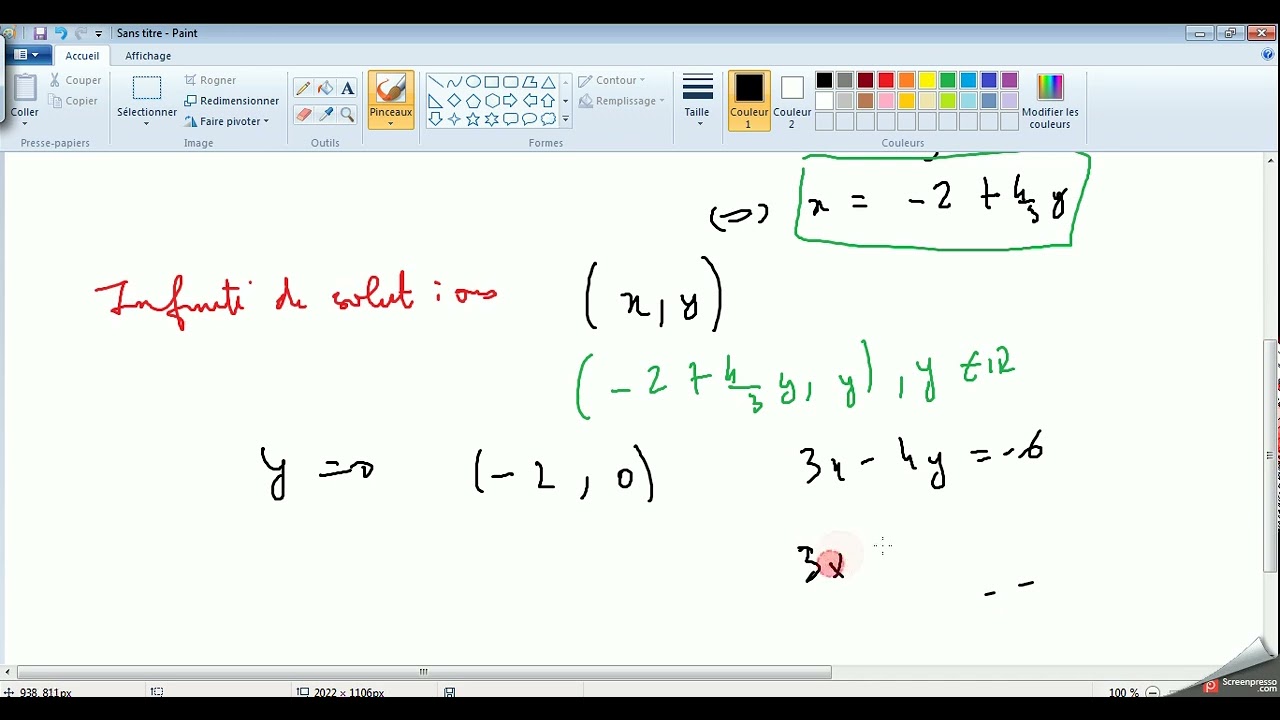 Sans titre - Paint
Accueil Affichage
Coller
Couper
Copier
Presse-papiers
Sélectionner
Rogner
Redimensionner
Faire pivoter
Image
A
Outils
Pinceaux
Formes
Contour
Remplissage
Taille
Couleur 1
Couleur 2
Modifier les couleurs
Couleurs
(⇔) x = -2 + 4/3 y
Infinité de solutions (x, y)
(-2 + 4/3 y, y), y ∈ IR
y = 0 (-2, 0) 3x - 4y = -6
3x
938, 811px 2022 × 1106px 100 %
Screenpresso
.com